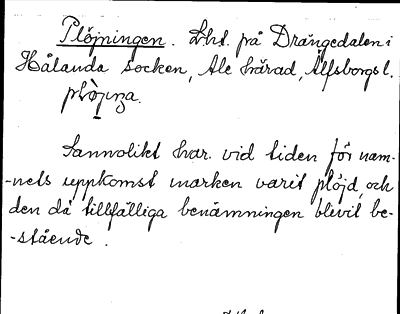 Plöjningen. Lht. på Drängedalen i
Hålanda socken, Ale härad, Älfsborgs l.
plö̀jnɪɳa.
Sannolikt har vid tiden för nam-
-nets uppkomst marken varit plöjd, och
den då tillfälliga benämningen blivit be-
-stående.